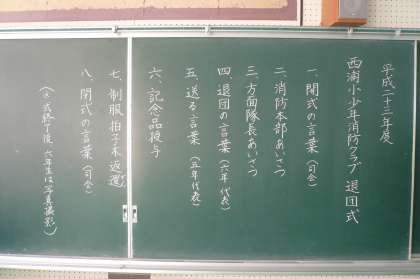 平成二十二年度
西浦小少年消防クラブ 退団式
一、開式の言葉（司会）
二、消防本部あいさつ
三、方面隊長あいさつ
四、退団の言葉（六年代表）
五、送る言葉（五年代表）
六、記念品授与
七、制服拍子木返還
八、閉式の言葉（司会）
（※式終了後、六年生は写真撮影）